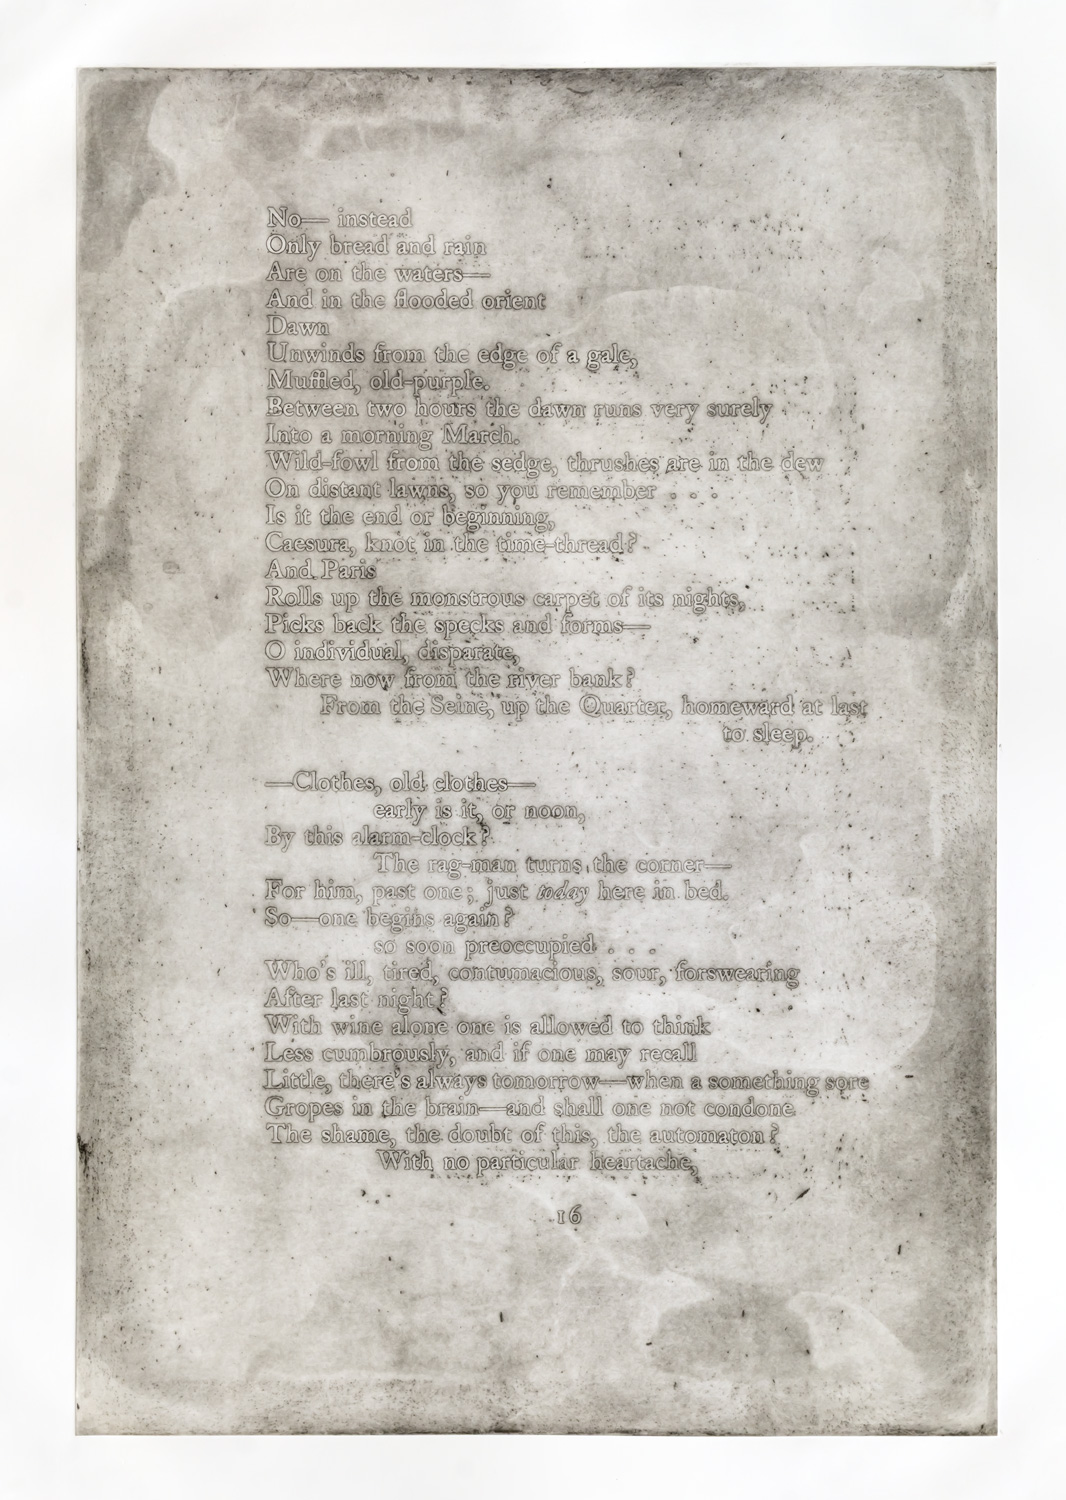 No— instead
Only bread and rain
Are on the waters—
And in the flooded orient
Dawn
Unwinds from the edge of a gale,
Muffled, old-purple.
Between two hours the dawn runs very surely
Into a morning March.
Wild-fowl from the sedge, thrushes are in the dew
On distant lawns, so you remember . . .
Is it the end or beginning,
Caesura, knot in the time-thread?
And Paris
Rolls up the monstrous carpet of its nights,
Picks back the specks and forms—
O individual, disparate,
Where now from the river bank?
From the Seine, up the Quarter, homeward at last
to sleep.
—Clothes, old clothes—
early is it, or noon,
By this alarm-clock?
The rag-man turns the corner—
For him, past one; just today here in bed.
So—one begins again?
so soon preoccupied . . .
Who's ill, tired, contumacious, sour, forswearing
After last night?
With wine alone one is allowed to think
Less cumbrously, and if one may recall
Little, there's always tomorrow—when a something sore
Gropes in the brain—and shall one not condone
The shame, the doubt of this, the automaton?
With no particular heartache,
16